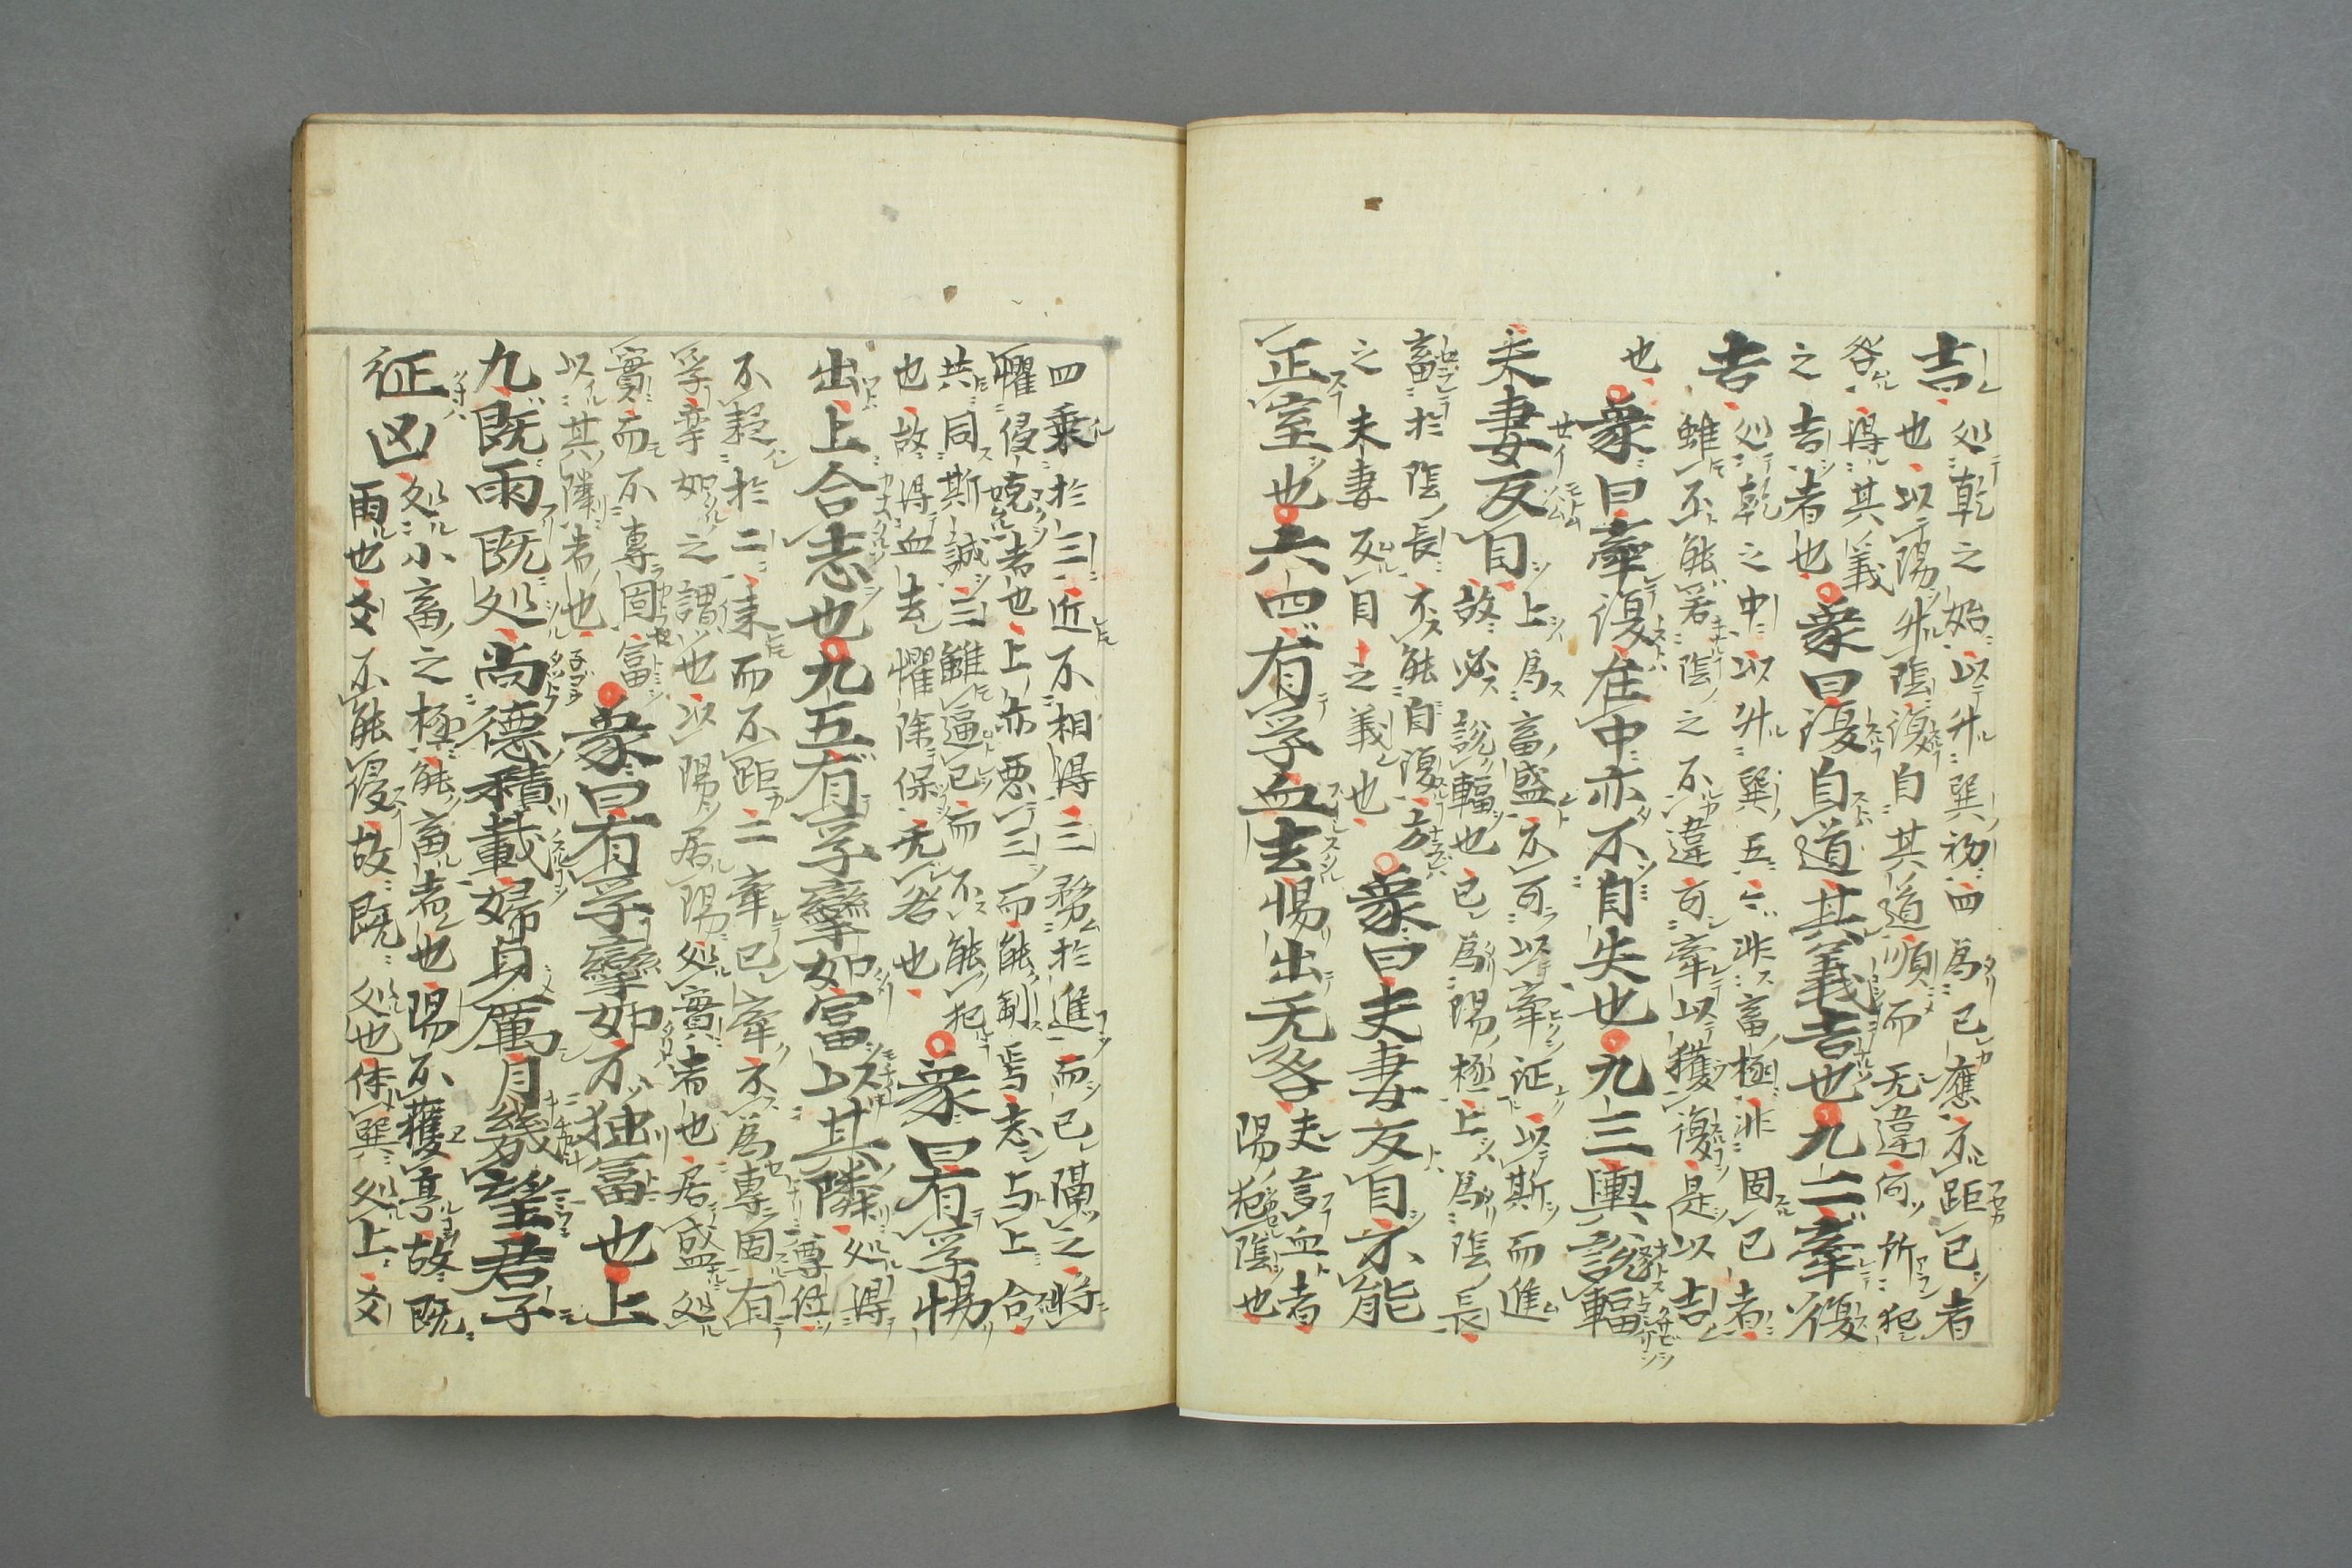 吉处乾之始以升巽初四為己應不距己者
也以陽升陰復自其道順而无違何所犯
咎得其義
之吉者也象曰復自道其義吉也九二牽復
吉处乾之中以升巽五五非畜極非固己者
雖不能若陰之不違可牽以獲復是以吉
也象曰牽復在中亦不自失也九三輿説輻
夫妻反目上為畜盛不可以牽征以斯而進
故必説輻也己為陽極上為陰長
畜於陰長不能自復方
之夫妻反目之義也象曰夫妻反目不能
正室也六四有孚血去惕出无咎夫言血者
陽犯陰也
四乗於三近不相得三務於進而己隔之将
懼侵克者也上亦悪三而能制焉志与上合
共同斯誠三雖逼己而不能犯
也故得血去懼除保无咎也象曰有孚惕
出上合志也九五有孚攣如富以其隣处得
尊位
不疑於二来而不距二牽己牽不為専固有
孚攣如之謂也以陽居陽处實者也居盛处
實而不専固富
以其隣者也象曰有孚攣如不独冨也上
九既雨既处尚德積載婦貞厲月幾望君子
征凶处小畜之極能畜者也陽不獲亨故既
雨也爻不能侵故既处也体巽处上爻